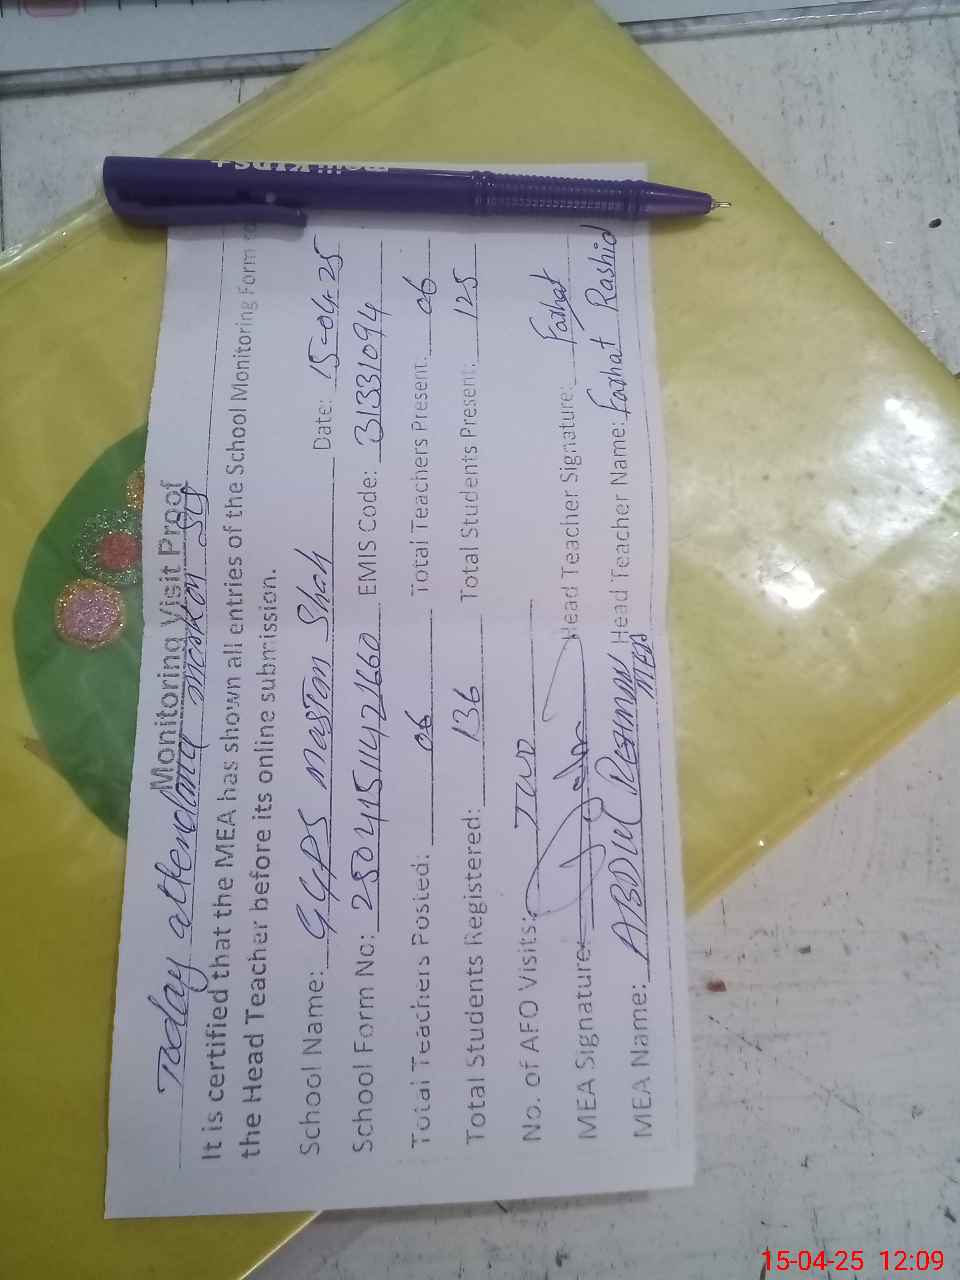 Monitoring Visit Proof
Today attendance marked on SIS
It is certified that the MEA has shown all entries of the School Monitoring Form to
the Head Teacher before its online submission.
School Name: GGPS Mastan Shah Date: 15-04-25
School Form No: EMIS Code: 31331094
Total Teachers Posted: 06 Total Teachers Present: 06
Total Students Registered: 136 Total Students Present: 125
No. of AFO Visits: Two
MEA Signature: Head Teacher Signature: Farhat
MEA Name: ABDUL REHMAN MEA Head Teacher Name: Farhat Rashid
15-04-25 12:09